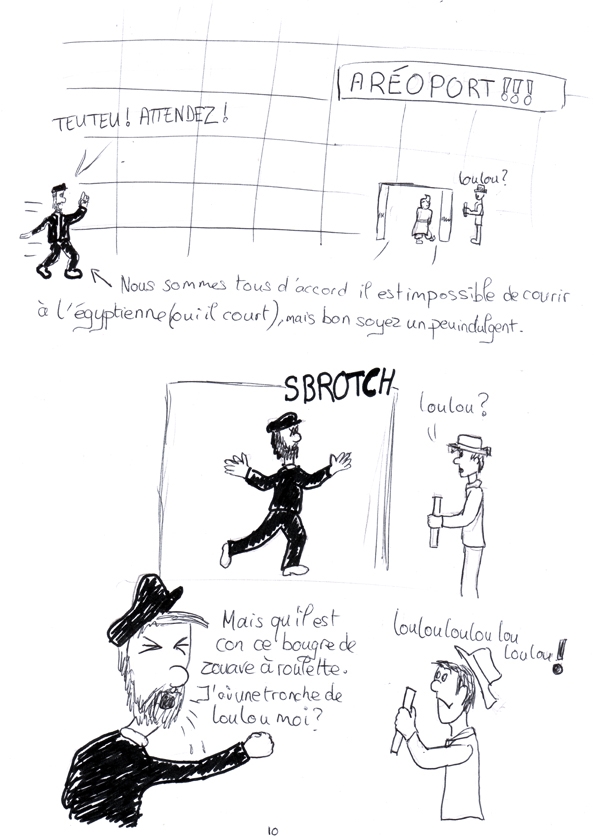 ARÉOPORT!!!
TEUTEU! ATTENDEZ!
loulou?
Nous sommes tous d'accord il est impossible de courir
à l'égyptienne (oui il court), mais bon soyez un peu indulgent.
SBROTCH
loulou?
Mais qu'il est
con ce bougre de
zouave à roulette.
J'ai une tronche de
loulou moi?
loulouloulou lou
loulou!
10